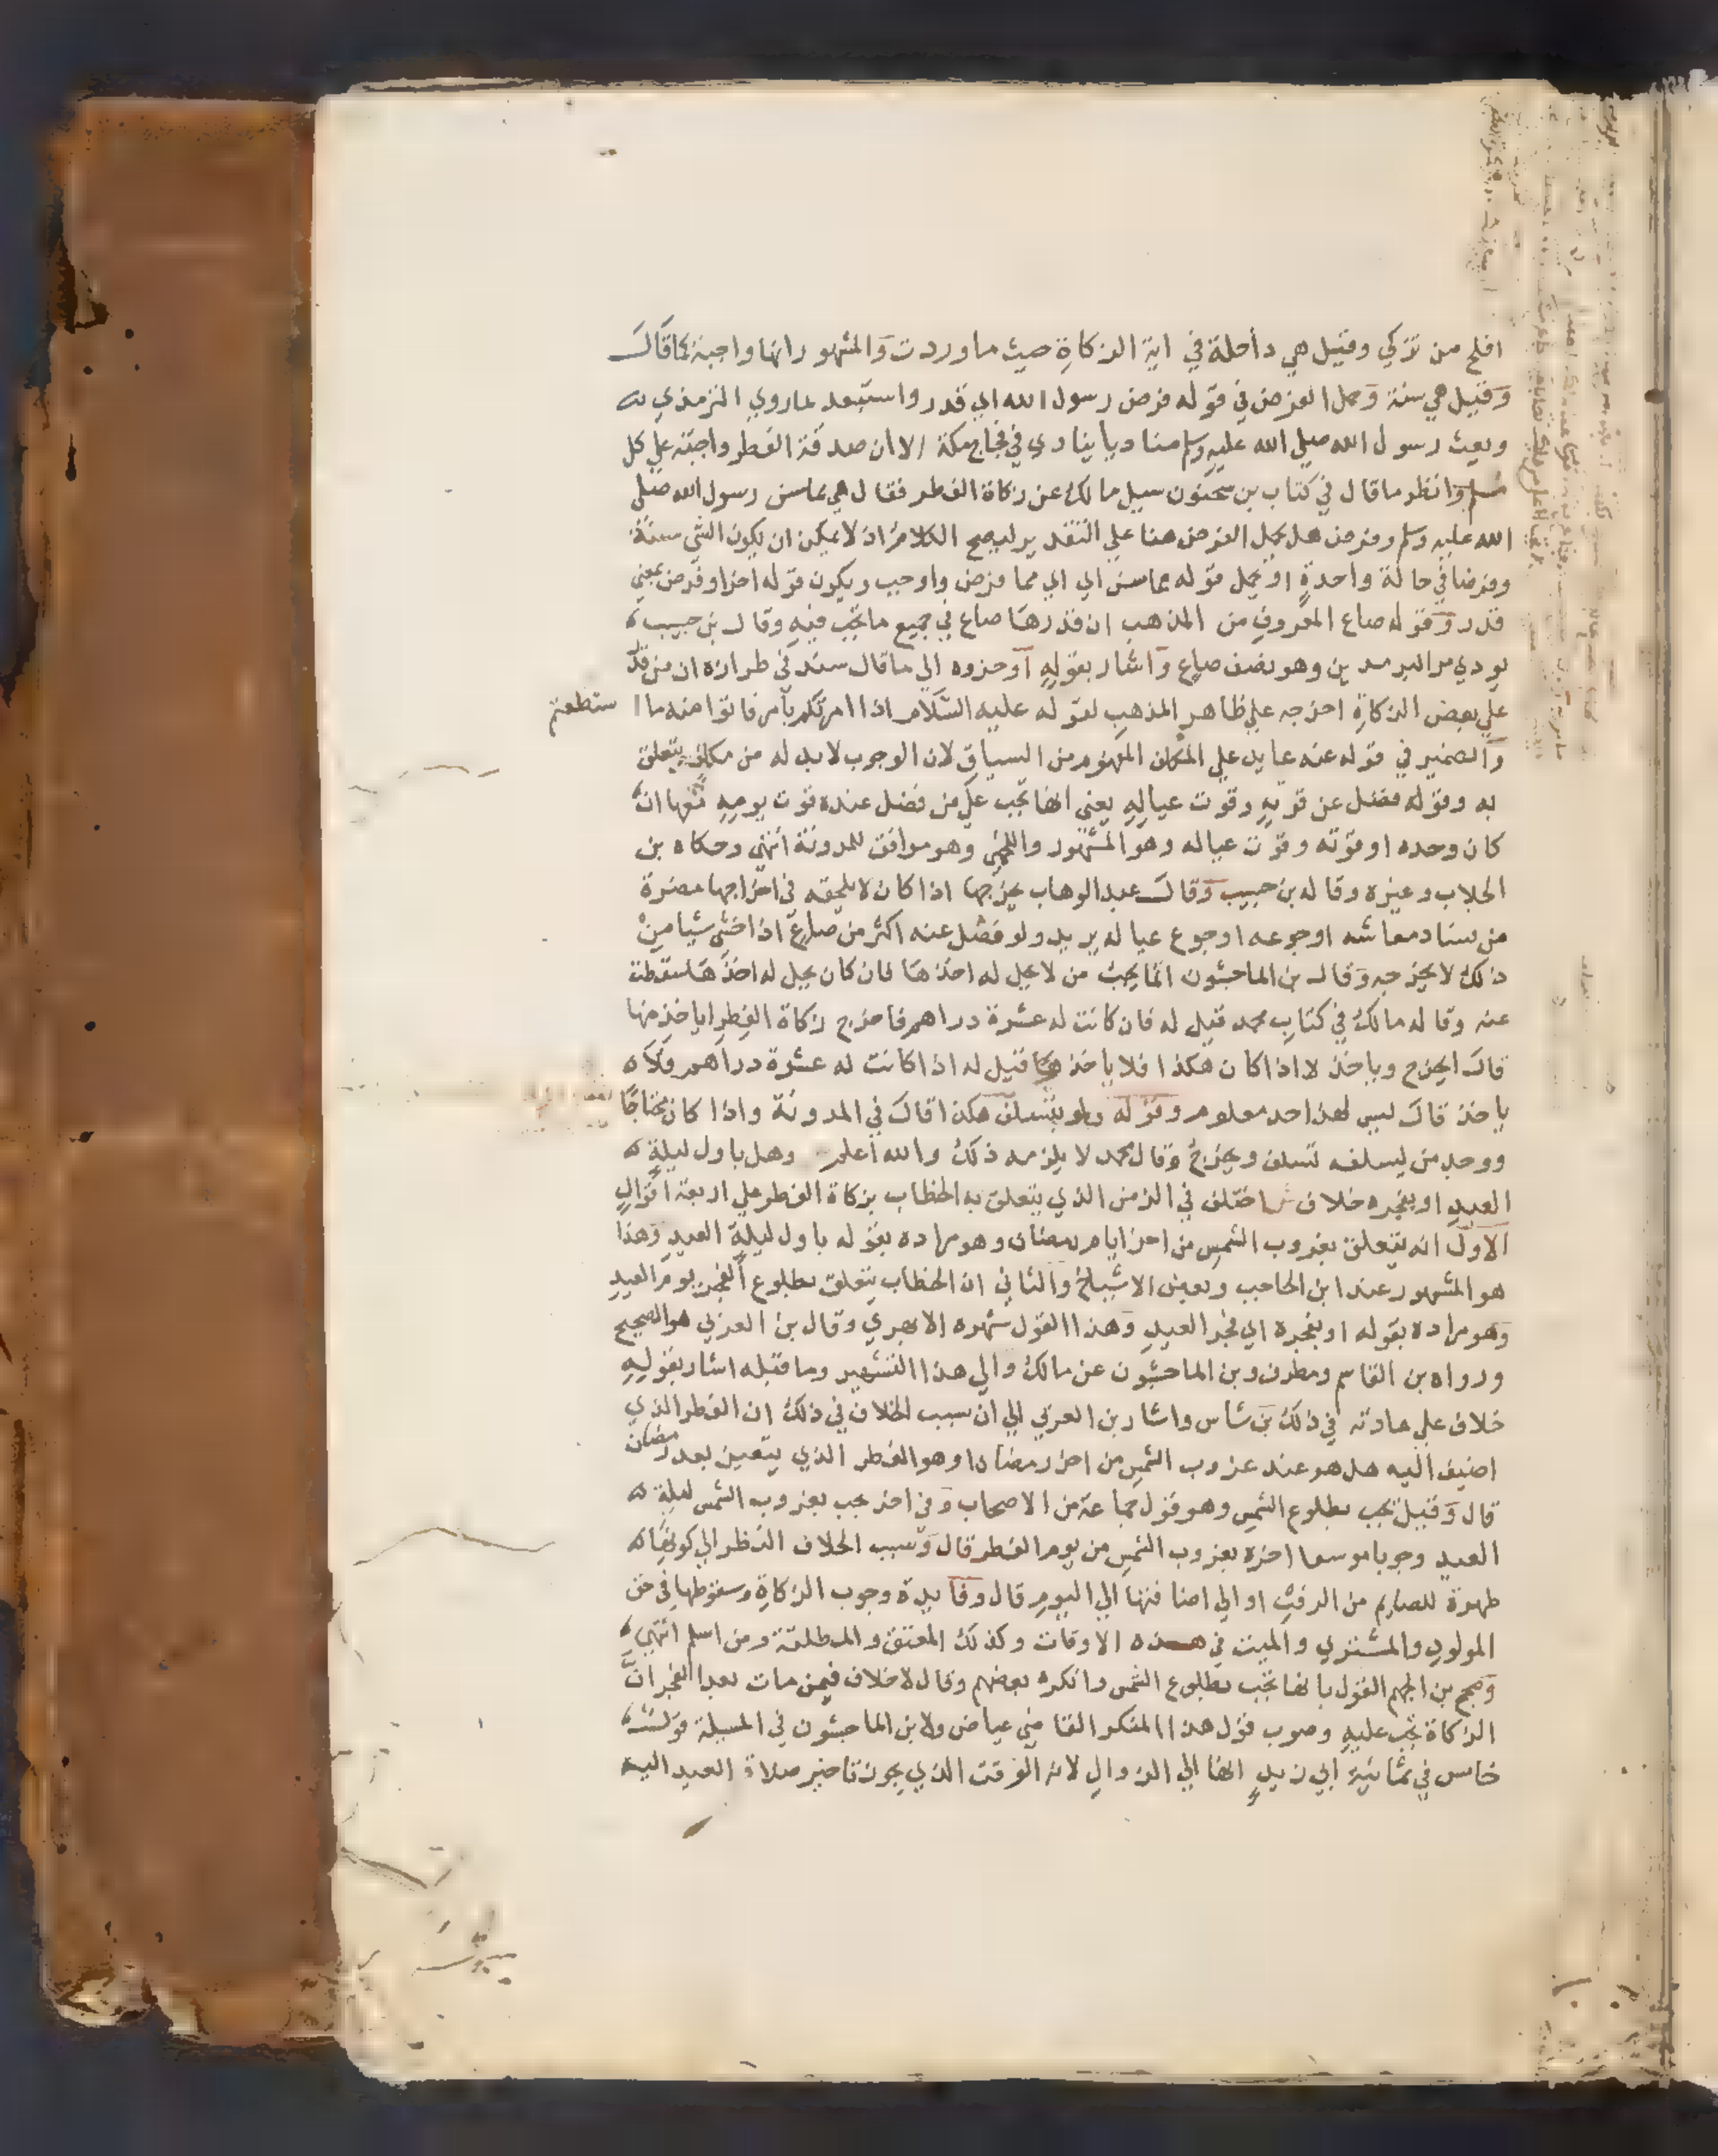 افلح من تزكي وقيل هي داخلة في اية الزكاة حيث ما وردت والمشهور انها واجبة كما قال
وقيل هي سنة وحمل الفرض في قوله فرض رسول الله اي قدر واستبعد لما روي الترمذي
وبعث رسول الله صلي الله عليه وسلم مناديا ينادي في فجاج مكة الا ان صدقة الفطر واجبة علي كل
مسلم وانظر ما قال في كتاب بن سحنون سيل مالك عن زكاة الفطر فقال هي مما سن رسول الله صلي
الله عليه وسلم وفرض هل يحمل الفرض هنا علي التقدير ليصح الكلام اذ لا يمكن ان يكون الشي سنة
وفرضا في حالة واحدة او يحمل قوله مما سن اي اي مما فرض واوجب ويكون قوله اخرا وفرض بمعني
قدر وقوله صاع المعروف من المذهب ان قدرها صاع في جميع ما تجب فيه وقال بن حبيب
يودي من البر مدين وهو نصف صاع واشار بقوله او جزوه الي ما قال سند في طرازه ان من قدر
علي بعض الزكاة اخرجه علي ظاهر المذهب لقوله عليه السلام اذا امرتكم بامر فاتوا منه ما استطعتم
والضمير في قوله عنه عايد علي المكلف المفهوم من السياق لان الوجوب لا بد له من مكلف يتعلق
به وقوله فضل عن قوته وقوت عياله يعني انها تجب علي من فضل عنده قوت يومه منها ان
كان وحده او قوته وقوت عياله وهو المشهور واللخمي وهو موافق للمدونة انتهي وحكاه بن
الجلاب وغيره وقاله بن حبيب وقال عبد الوهاب يخرجها اذا كان لا يلحقه في اخراجها مضرة
من فساد معاشه او جوعه او جوع عياله يريد ولو فضل عنه اكثر من صاع اذا خشي شيا من
ذلك لا يخرجه وقال بن الماجشون انما يجب من لا يحل له اخذها فان كان يحل له اخذها سقطت
عنه وقاله مالك في كتاب محمد قيل له فان كانت له عشرة دراهم فاخرج زكاة الفطر اياخذ منها
قال ايخرج وياخذ لا اذا كان هكذا فلا ياخذ قيل له اذا كانت له عشرة دراهم ولا
ياخذ قال ليس لهذا حد معلوم وقوله ولو بتسلف هكذا قال في المدونة واذا كان محتاجا
ووجد من يسلفه تسلف ويخرج وقال محمد لا يلزمه ذلك والله اعلم وهل باول ليلة
العيد او بفجره خلاف ش اختلف في الزمن الذي يتعلق به الخطاب بزكاة الفطر علي اربعة اقوال
الاول انه يتعلق بغروب الشمس من اخر ايام رمضان وهو مراده بقوله باول ليلة العيد وهذا
هو المشهور عند ابن الحاجب وبعض الاشياخ والثاني ان الخطاب يتعلق بطلوع الفجر يوم العيد
وهو مراده بقوله او بفجره اي فجر العيد وهذا القول شهره الابهري وقال بن العربي هو الصحيح
ورواه بن القاسم ومطرف وبن الماجشون عن مالك والي هذا التشهير وما قبله اشار بقوله
خلاف علي عادته في ذلك بن شاس واشار بن العربي الي ان سبب الخلاف في ذلك ان الفطر الذي
اضيف اليه هل هو عند غروب الشمس من اخر رمضان او هو الفطر الذي يتعين بعد رمضان
قال وقيل تجب بطلوع الشمس وهو قول جماعة من الاصحاب وفي اخر يجب بغروب الشمس ليلة
العيد وجوبا موسعا اخره بغروب الشمس من يوم الفطر قال وسبب الخلاف النظر الي كونها
طهرة للصايم من الرفث او الي اضافتها الي اليوم قال وفايدة وجوب الزكاة وسقوطها في حق
المولود والمشتري والميت في هذه الاوقات وكذلك المعتق والمطلقة ومن اسلم انتهي
وصحح بن الجهم القول بانها تجب بطلوع الشمس وانكره بعضهم وقال لا خلاف فيمن مات بعد الفجر ان
الزكاة تجب عليه وصوب قول هذا المنكر القاضي عياض ولابن الماجشون في المسيلة قول
خامس في ثمانية ابي زيد انها الي الزوال لانه الوقت الذي يجوز تاخير صلاة العيد اليه